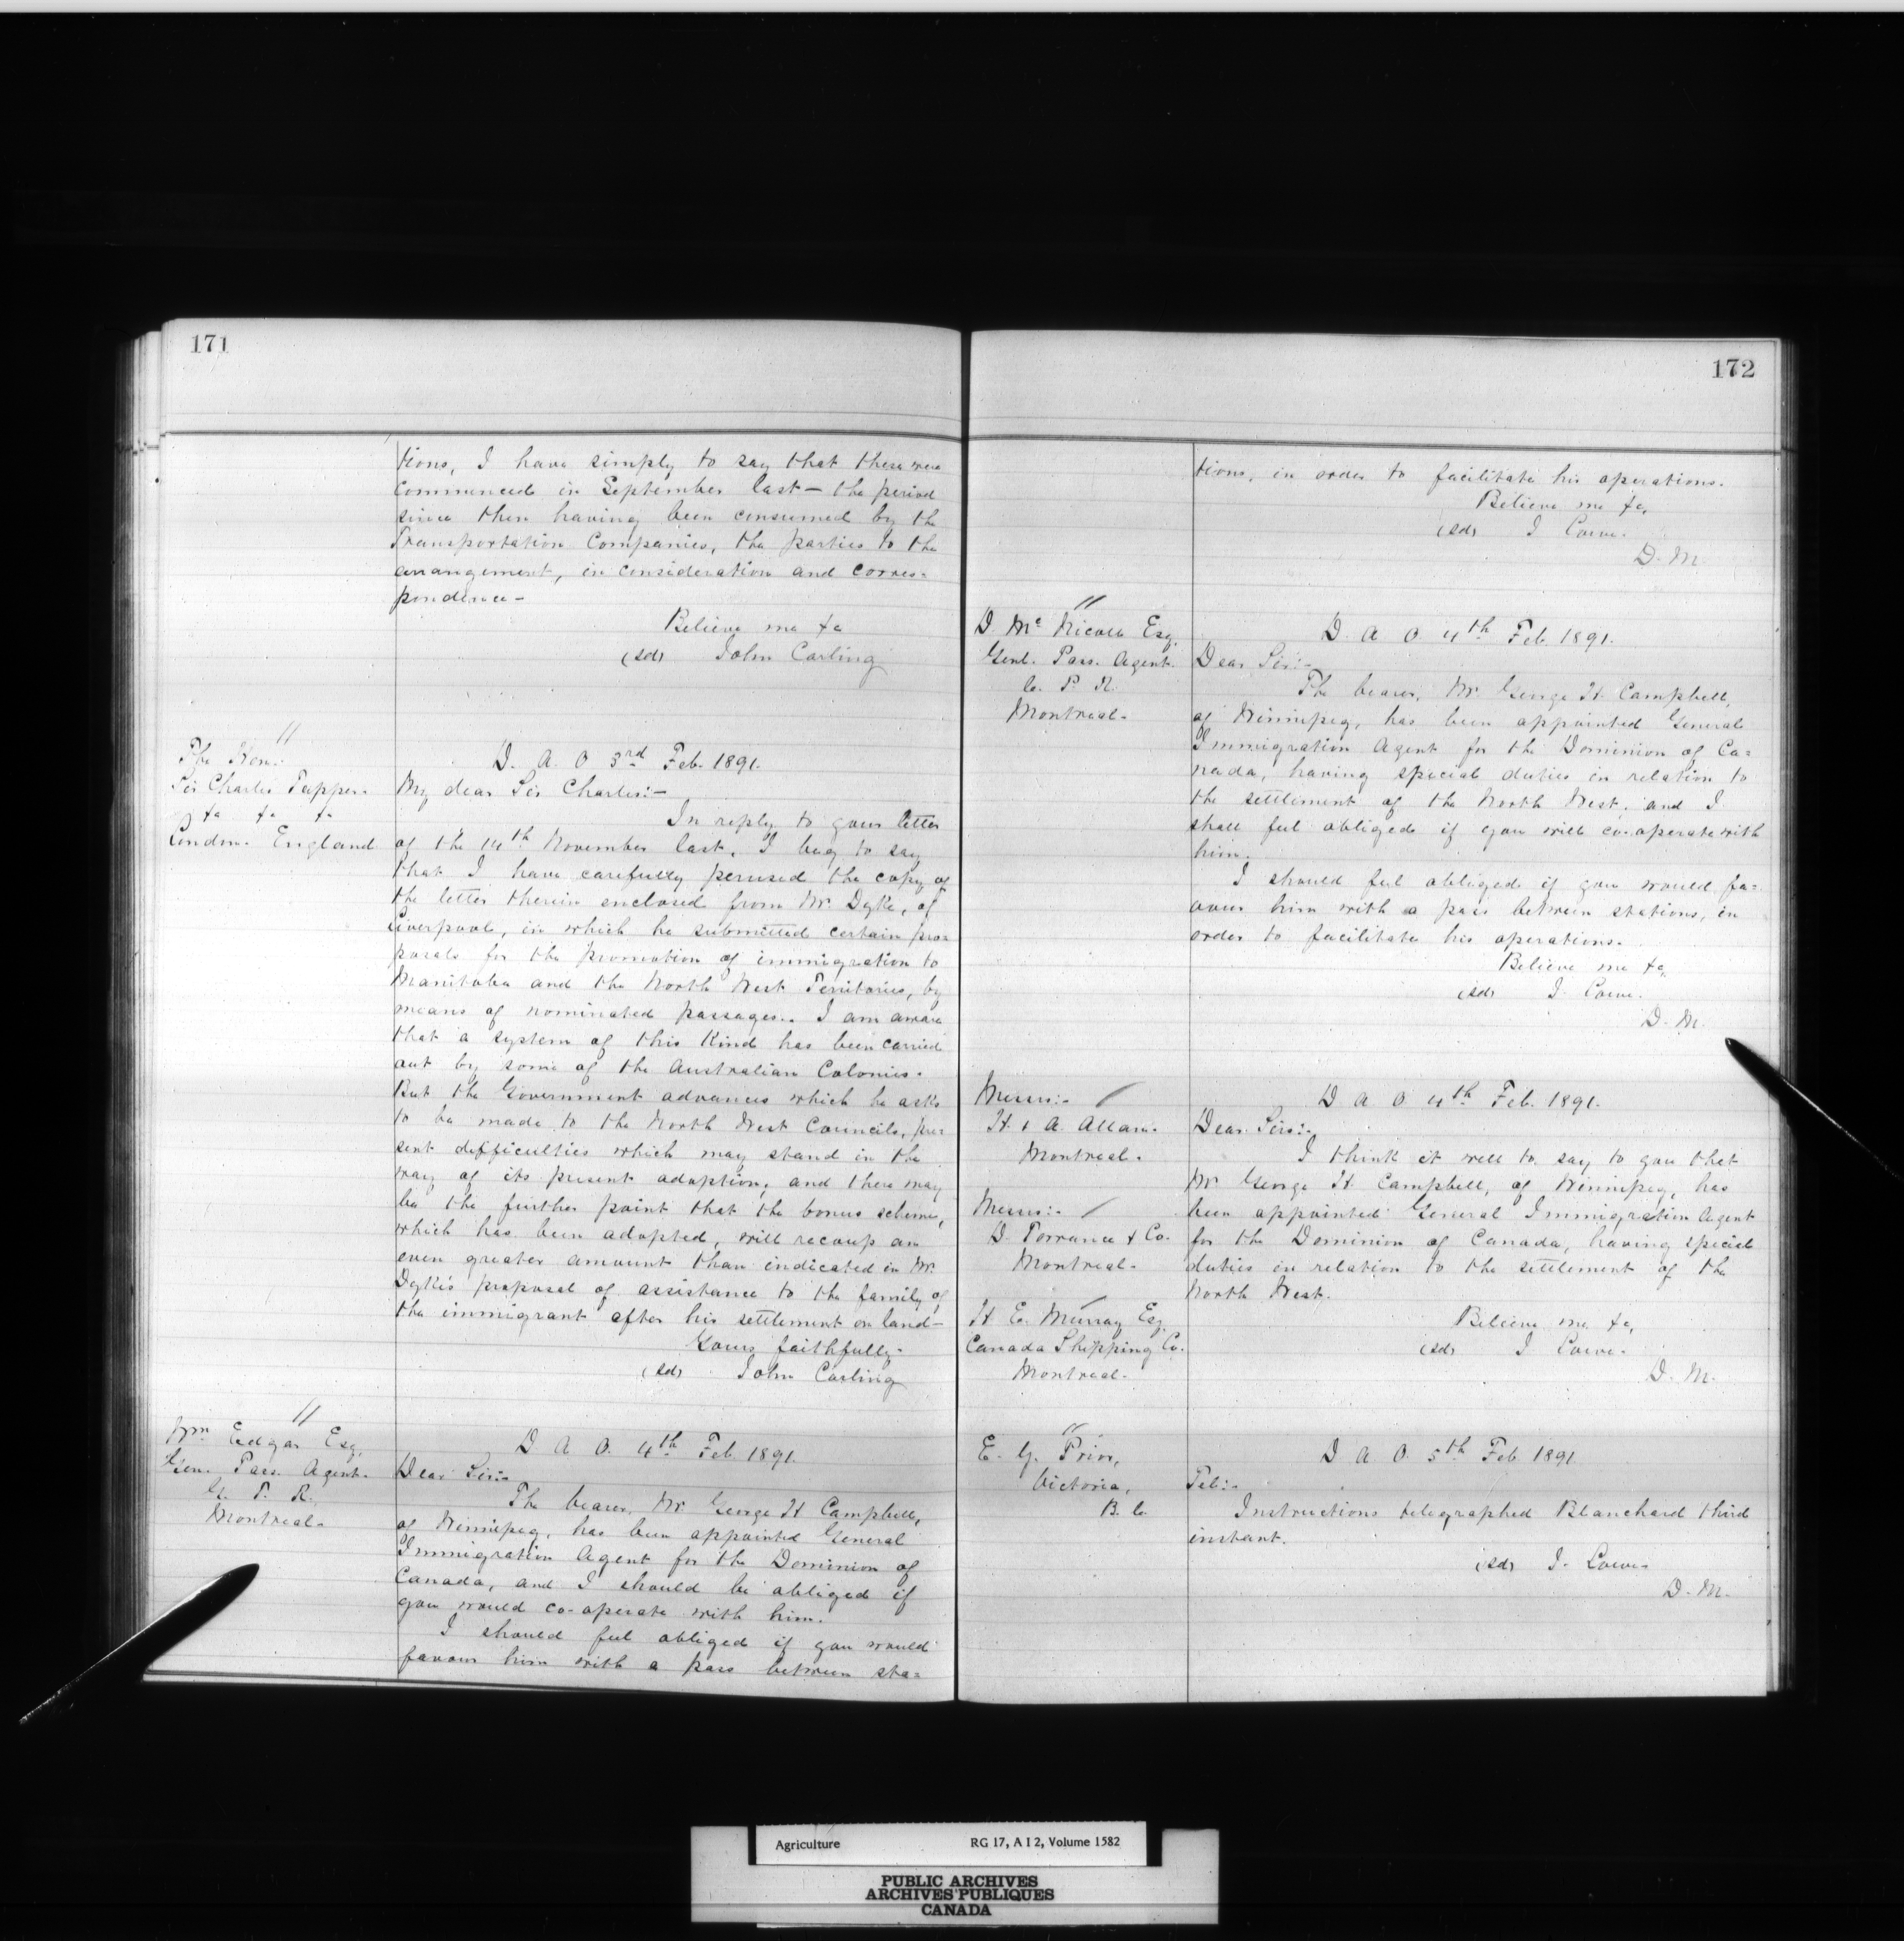 171
tions, I have simply to say that these were
commenced in September last — the period
since then having been consumed by the
Transportation Companies, the parties to the
arrangement, in consideration and corres=
pondence —
Believe me &c
(sd) John Carling
"
The Hon:
Sir Charles Tupper.
&c &c &c
London. England
D. A. O 3rd Feb. 1891.
My dear Sir Charles:—
In reply to your letter
of the 14th November last, I beg to say
that I have carefully perused the copy of
the letter therein enclosed from Mr. Dyke, of
Liverpool, in which he submitted certain pro=
posals for the promotion of immigration to
Manitoba and the North West Territories, by
means of nominated passages. I am aware
that a system of this kind has been carried
out by some of the Australian Colonies.
But the Government advances which he asks
to be made to the North West Councils, pre=
sent difficulties which may stand in the
way of its present adoption, and there may
be the further point that the bonus scheme,
which has been adopted, will recoup an
even greater amount than indicated in Mr.
Dyke's proposal of assistance to the family of
the immigrant after his settlement on land —
Yours faithfully.
(sd) John Carling
"
Wm Edgar Esq.
Gen. Pass. Agent.
G. T. R.
Montreal.
D A O. 4th Feb. 1891.
Dear Sir:-
The bearer, Mr. George H Campbell,
of Winnipeg, has been appointed General
Immigration Agent for the Dominion of
Canada, and I should be obliged if
you would co-operate with him.
I should feel obliged if you would
favour him with a pass between sta=
172
tions, in order to facilitate his operations.
Believe me &c,
(sd) J Lowe.
D. M.
"
D McNicoll Esq.
Genl. Pass. Agent.
C. P. R.
Montreal.
D. A O 4th Feb. 1891.
Dear Sir:-
The bearer, Mr. George H. Campbell,
of Winnipeg, has been appointed General
Immigration Agent for the Dominion of Ca=
nada, having special duties in relation to
the settlement of the North West, and I
shall feel obliged if you will co-operate with
him.
I should feel obliged if you would fa=
vour him with a pass between stations, in
order to facilitate his operations.
Believe me &c,
(sd) J. Lowe.
D. M.
Messrs:-
H. & A. Allan.
Montreal.
Messrs:-
D. Torrance & Co.
Montreal.
H E. Murray Esq.
Canada Shipping Co.
Montreal.
D. A O. 4th Feb. 1891.
Dear Sirs:-
I think it well to say to you that
Mr George H. Campbell, of Winnipeg, has
been appointed General Immigration Agent
for the Dominion of Canada, having special
duties in relation to the settlement of the
North West.
Believe me &c,
(sd) J Lowe.
D. M.
"
E. G. Prior,
Victoria,
B. C.
D A O. 5th Feb 1891
Tel:-
Instructions telegraphed Blanchard third
instant.
(sd) J. Lowe.
D. M.
Agriculture RG 17, A I 2, Volume 1582
PUBLIC ARCHIVES
ARCHIVES PUBLIQUES
CANADA